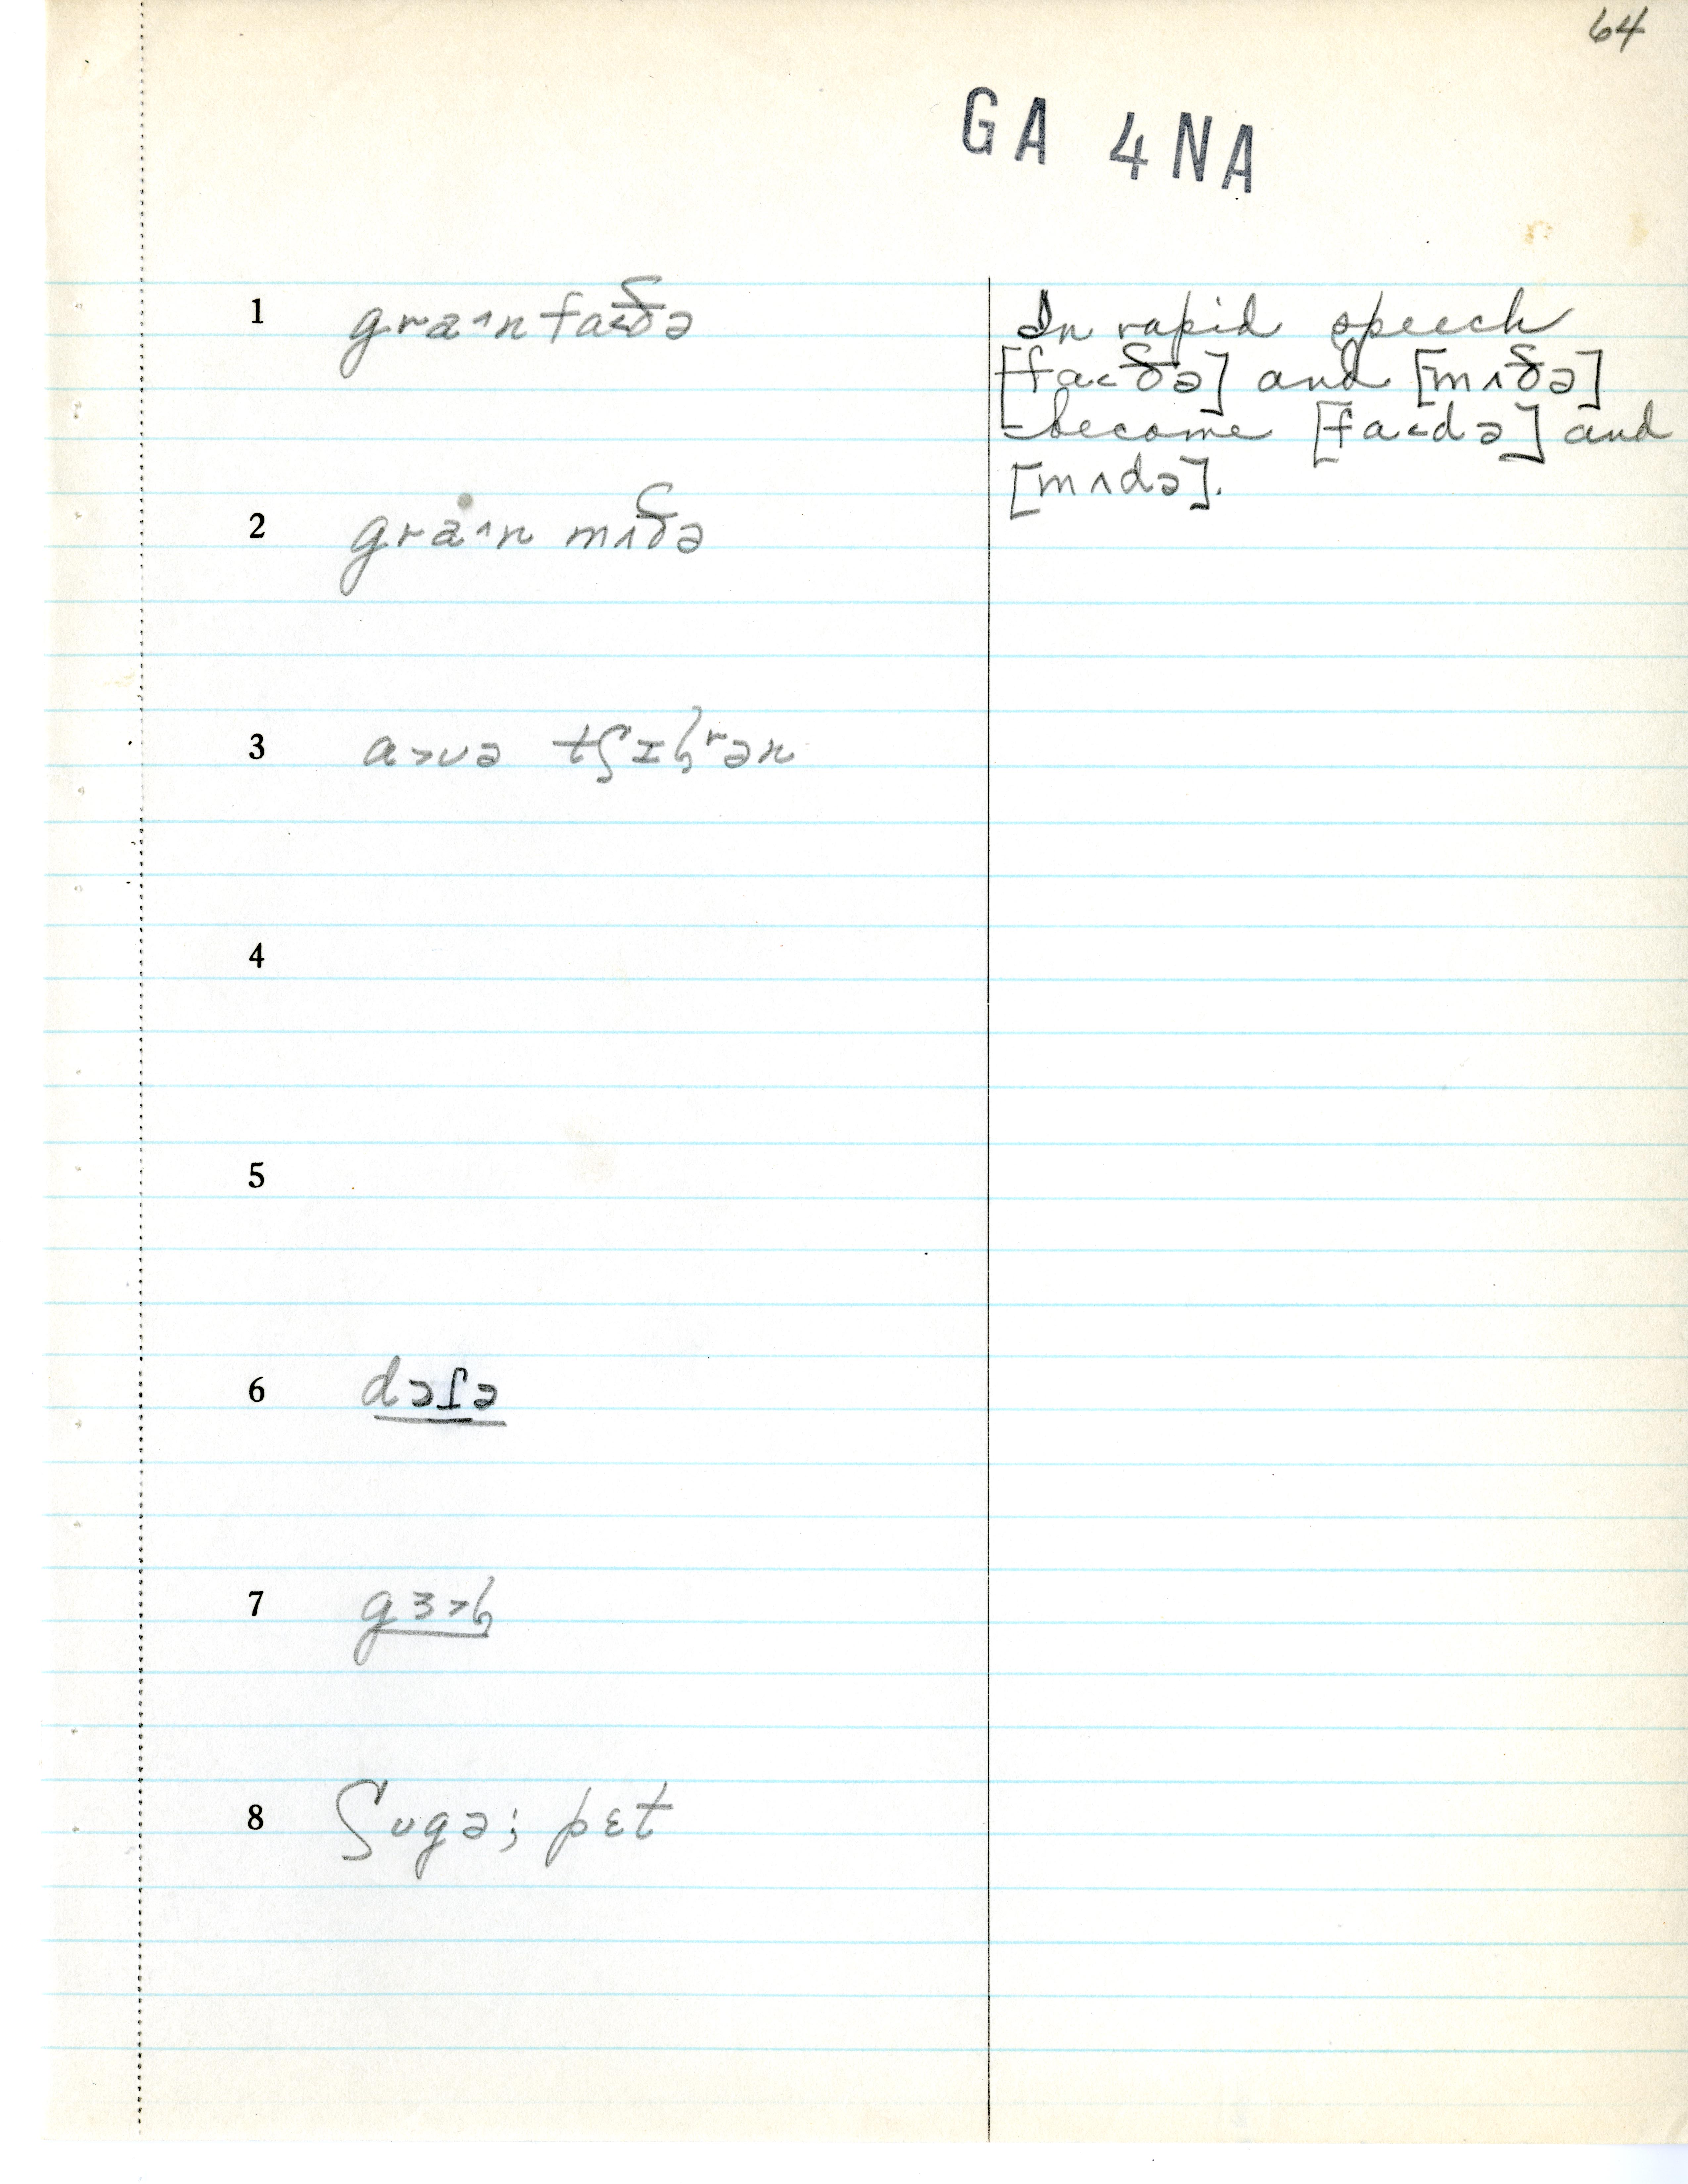 64
GA 4NA
1 gra^n fa<ðə
2 gra^n mʌðə
3 a>ʊə tʃɪlʳən
4
5
6 dɔɾə
7 gɜ>ɫ
8 ʃʊgə; pɛt
In rapid speech
[fa<ðə] and [mʌðə]
become [fa<də] and
[mʌdə].